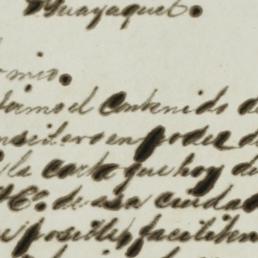 Guayaquil.
mio.
el contenido de
en poder de
la carta que hoy
de esa ciudad
posible, faciliten